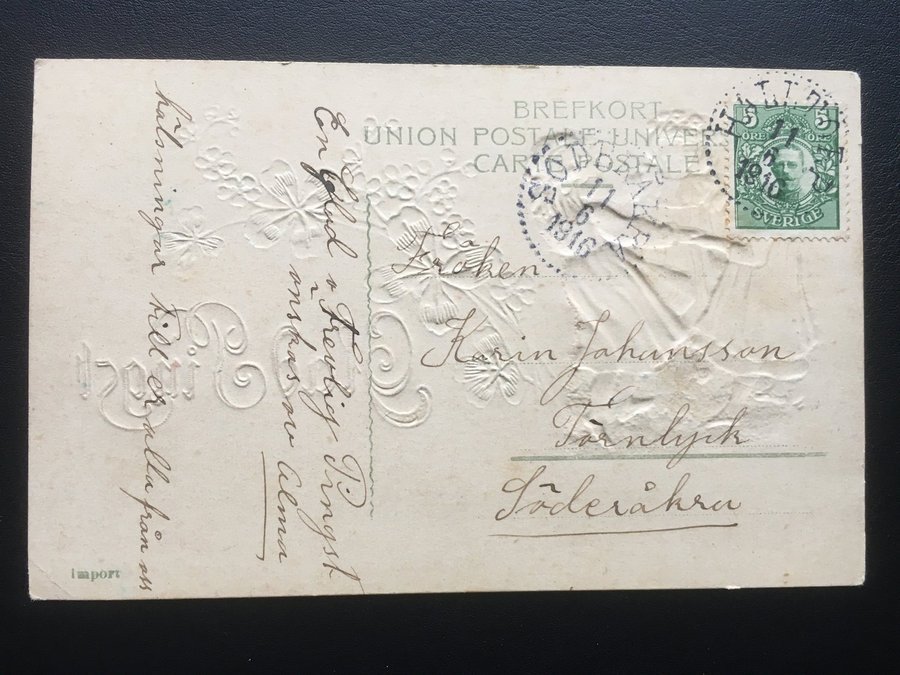 BREFKORT
UNION POSTALE UNIVERS
CARTE POSTALE
5 5
ÖRE ÖRE
SVERIGE
11
6
1910
SÖDERÅKRA
11
6
1916
Fröken
Karin Johansson
Törnlyck
Söderåkra
En Glad o Trevlig Pingst
önskas av Alma
hälsningar till er alla från oss
Glad Pingst
import